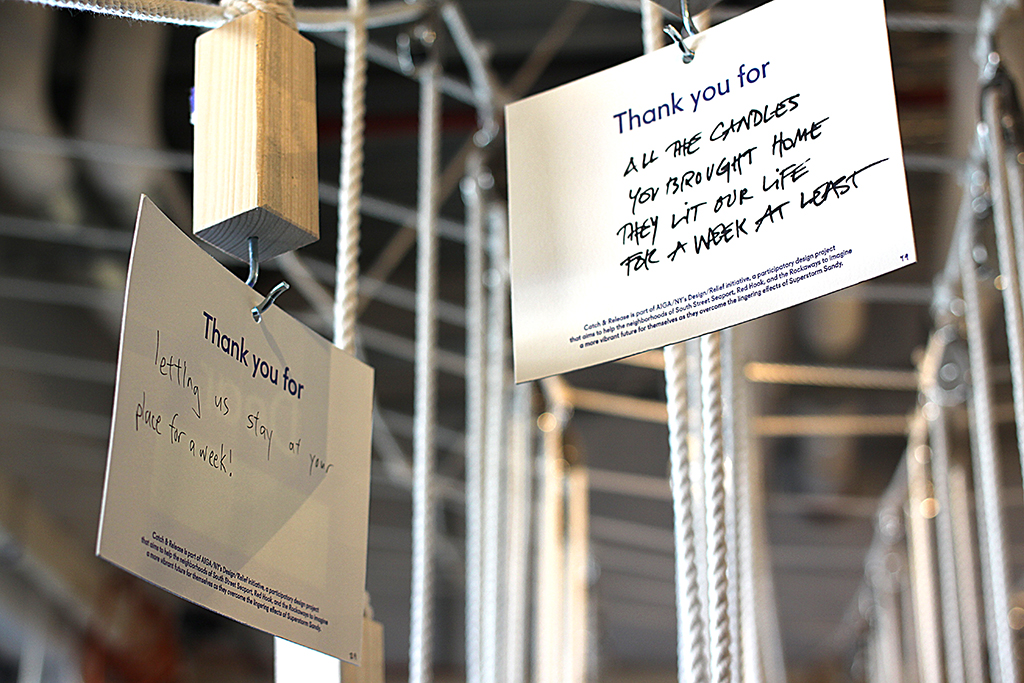 Thank you for
letting us stay at your
place for a week!
Catch & Release is part of AIGA/NY's Design/Relief initiative, a participatory design project
that aims to help the neighborhoods of South Street Seaport, Red Hook, and the Rockaways to imagine
a more vibrant future for themselves as they overcome the lingering effects of Superstorm Sandy.
Thank you for
ALL THE CANDLES
YOU BROUGHT HOME
THEY LIT OUR LIFE
FOR A WEEK AT LEAST
Catch & Release is part of AIGA/NY's Design/Relief initiative, a participatory design project
that aims to help the neighborhoods of South Street Seaport, Red Hook, and the Rockaways to imagine
a more vibrant future for themselves as they overcome the lingering effects of Superstorm Sandy.